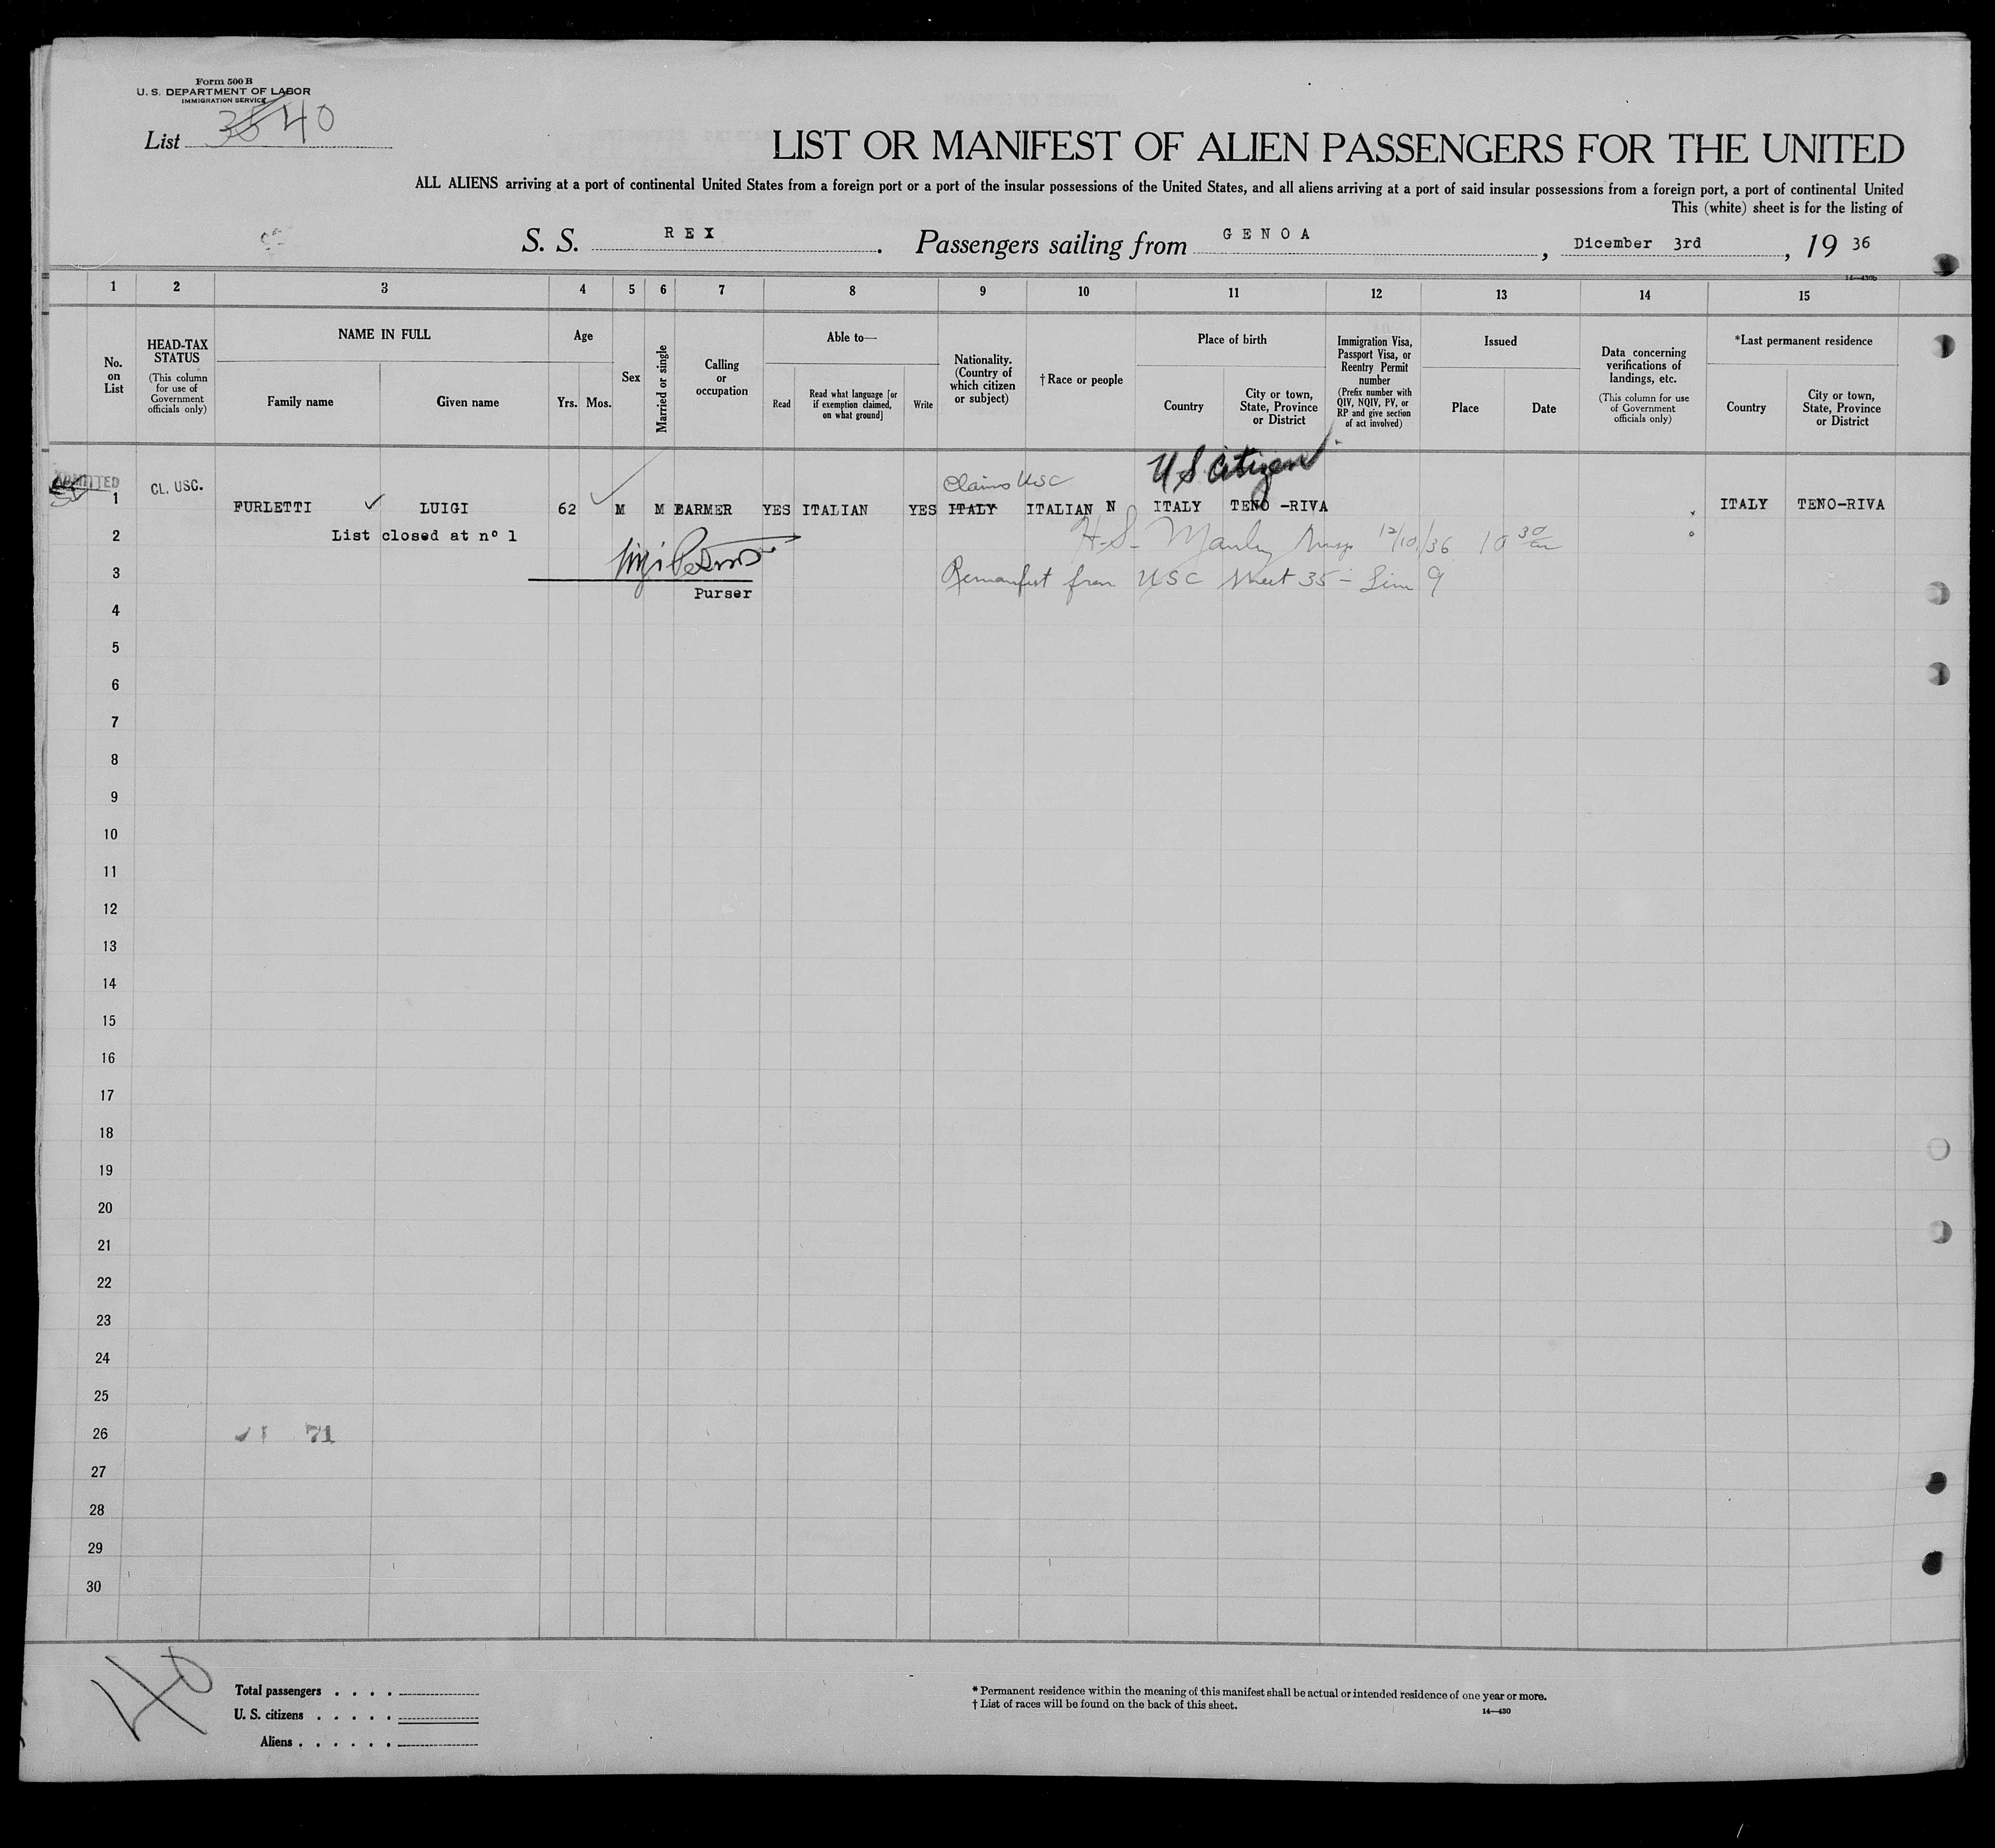 Form 500 B
U. S. DEPARTMENT OF LABOR
IMMIGRATION SERVICE
List 35 40
LIST OR MANIFEST OF ALIEN PASSENGERS FOR THE UNITED
ALL ALIENS arriving at a port of continental United States from a foreign port or a port of the insular possessions of the United States, and all aliens arriving at a port of said insular possessions from a foreign port, a port of continental United
This (white) sheet is for the listing of
S. S. REX. Passengers sailing from GENOA, Dicember 3rd, 19 36
14—430b
1 2 3 4 5 6 7 8 9 10 11 12 13 14 15
No. on List
HEAD-TAX STATUS
(This column for use of Government officials only)
NAME IN FULL
Family name
Given name
Age
Yrs. Mos.
Sex
Married or single
Calling or occupation
Able to—
Read
Read what language [or if exemption claimed, on what ground]
Write
Nationality. (Country of which citizen or subject)
† Race or people
Place of birth
Country
City or town, State, Province or District
Immigration Visa, Passport Visa, or Reentry Permit number
(Prefix number with QIV, NQIV, PV, or RP and give section of act involved)
Issued
Place
Date
Data concerning verifications of landings, etc.
(This column for use of Government officials only)
*Last permanent residence
Country
City or town, State, Province or District
U S Citizen
Claims USC
ADMITTED
1 CL. USC. FURLETTI LUIGI 62 M M FARMER YES ITALIAN YES ITALY ITALIAN N ITALY TENO -RIVA ITALY TENO-RIVA
2 List closed at nº 1 H. S. Manley Insp 12/10/36 10 30 am
3 Remanifest from USC sheet 35 - Line 9
Purser
4
5
6
7
8
9
10
11
12
13
14
15
16
17
18
19
20
21
22
23
24
25
26 71
27
28
29
30
40
Total passengers . . . .
U. S. citizens . . . . .
Aliens . . . . . .
* Permanent residence within the meaning of this manifest shall be actual or intended residence of one year or more.
† List of races will be found on the back of this sheet.
14—430